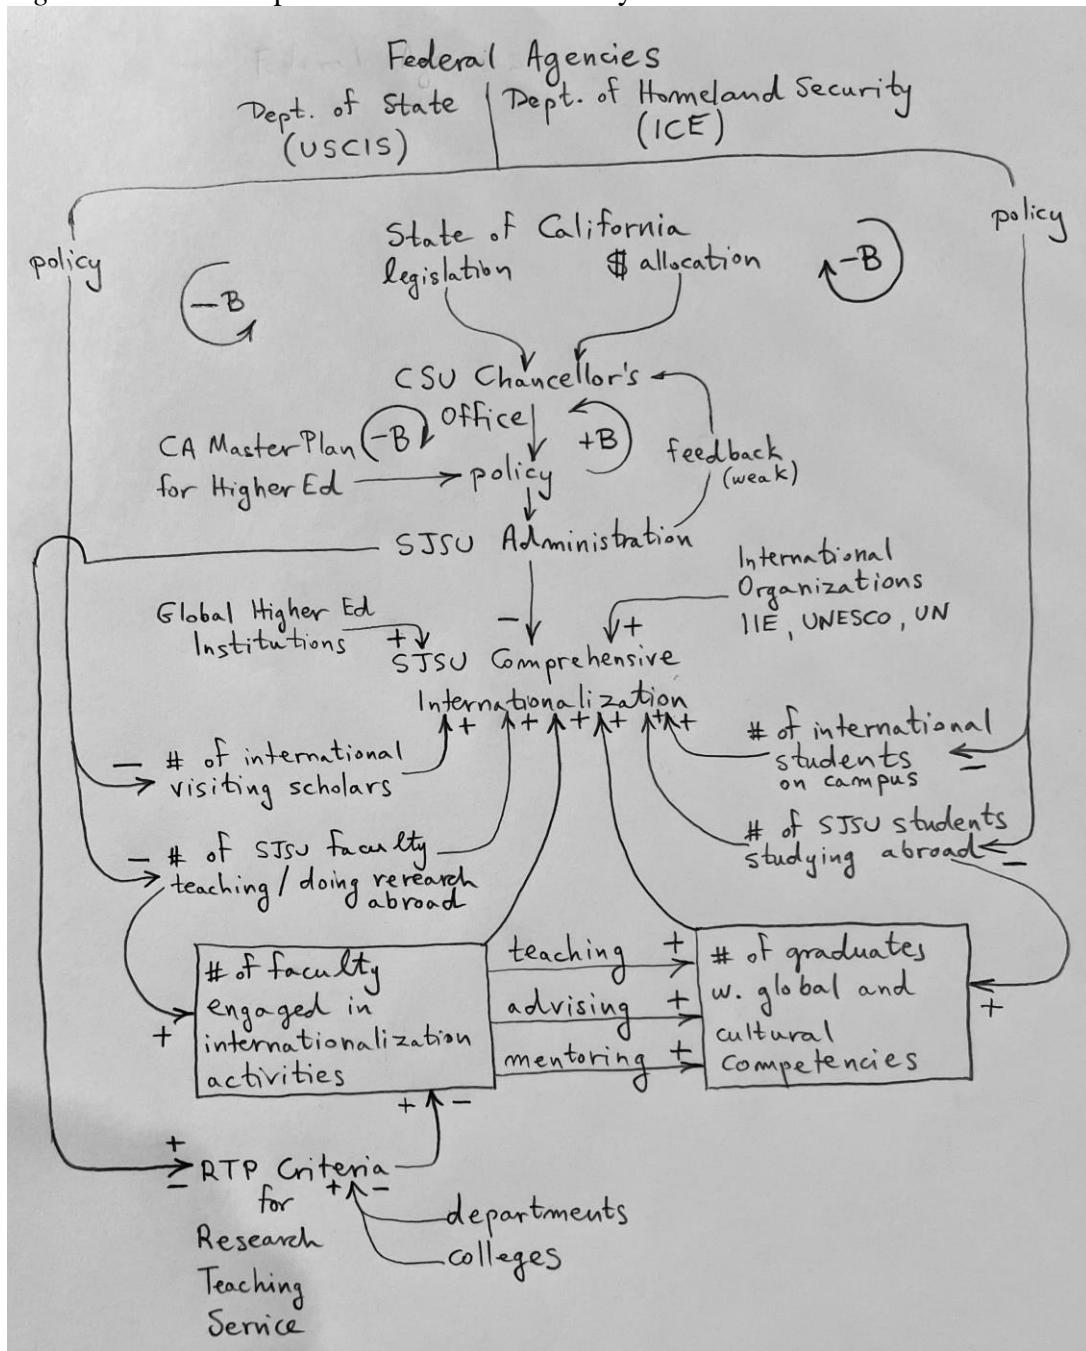 Federal Agencies
Dept. of State | Dept. of Homeland Security
(USCIS) (ICE)
policy
policy
State of California
legislation $ allocation
-B
-B
CSU Chancellor's
Office
-B
+B
CA Master Plan
for Higher Ed
policy
feedback
(weak)
SJSU Administration
International
Organizations
IIE, UNESCO, UN
Global Higher Ed
Institutions
+
-
+
SJSU Comprehensive
Internationalization
+ + + + + +
- # of international
visiting scholars
# of international
students
on campus
-
- # of SJSU faculty
teaching / doing rerearch
abroad
# of SJSU students
studying abroad
-
# of faculty
engaged in
internationalization
activities
+
teaching +
advising +
mentoring +
# of graduates
w. global and
cultural
competencies
+
+ -
+
-
RTP Criteria
+ -
for
Research
Teaching
Service
departments
colleges